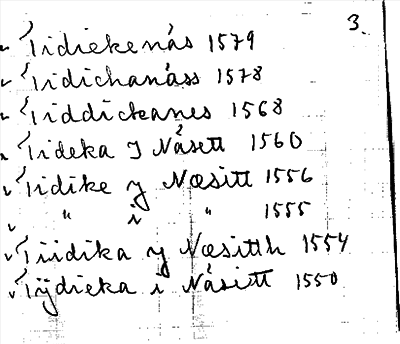 3.
Tidiekenås 1579
Tidichanåss 1578
Tiddickanes 1568
Tideka J Nåsett 1560
Tidike y Næsitt 1556
" i " 1555
Tiidika y Næsitth 1554
Tijdieka i Nåsitt 1550